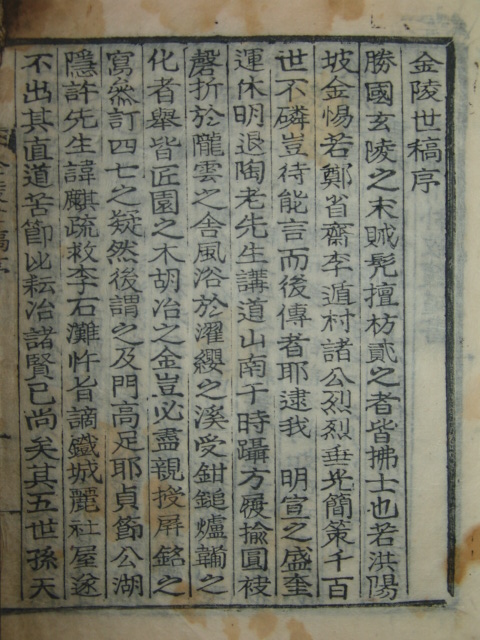 金陵世稿序
勝國玄陵之末賊髡擅枋貳之者皆拂士也若洪陽
坡金惕若鄭省齋李遁村諸公烈烈垂光簡策千百
世不磷豈待能言而後傳者耶逮我 明宣之盛奎
運休明退陶老先生講道山南于時躡方屨揄圓袚
磬折於隴雲之舍風浴於濯纓之溪受鉗鎚爐鞴之
化者舉皆匠園之木胡冶之金豈必盡親授屏銘之
寫叅訂四七之疑然後謂之及門高足耶貞節公湖
隱許先生諱麒疏救李石灘忤旨謫鐵城麗社屋遂
不出其直道苦節比耘冶諸賢已尚矣其五世孫天